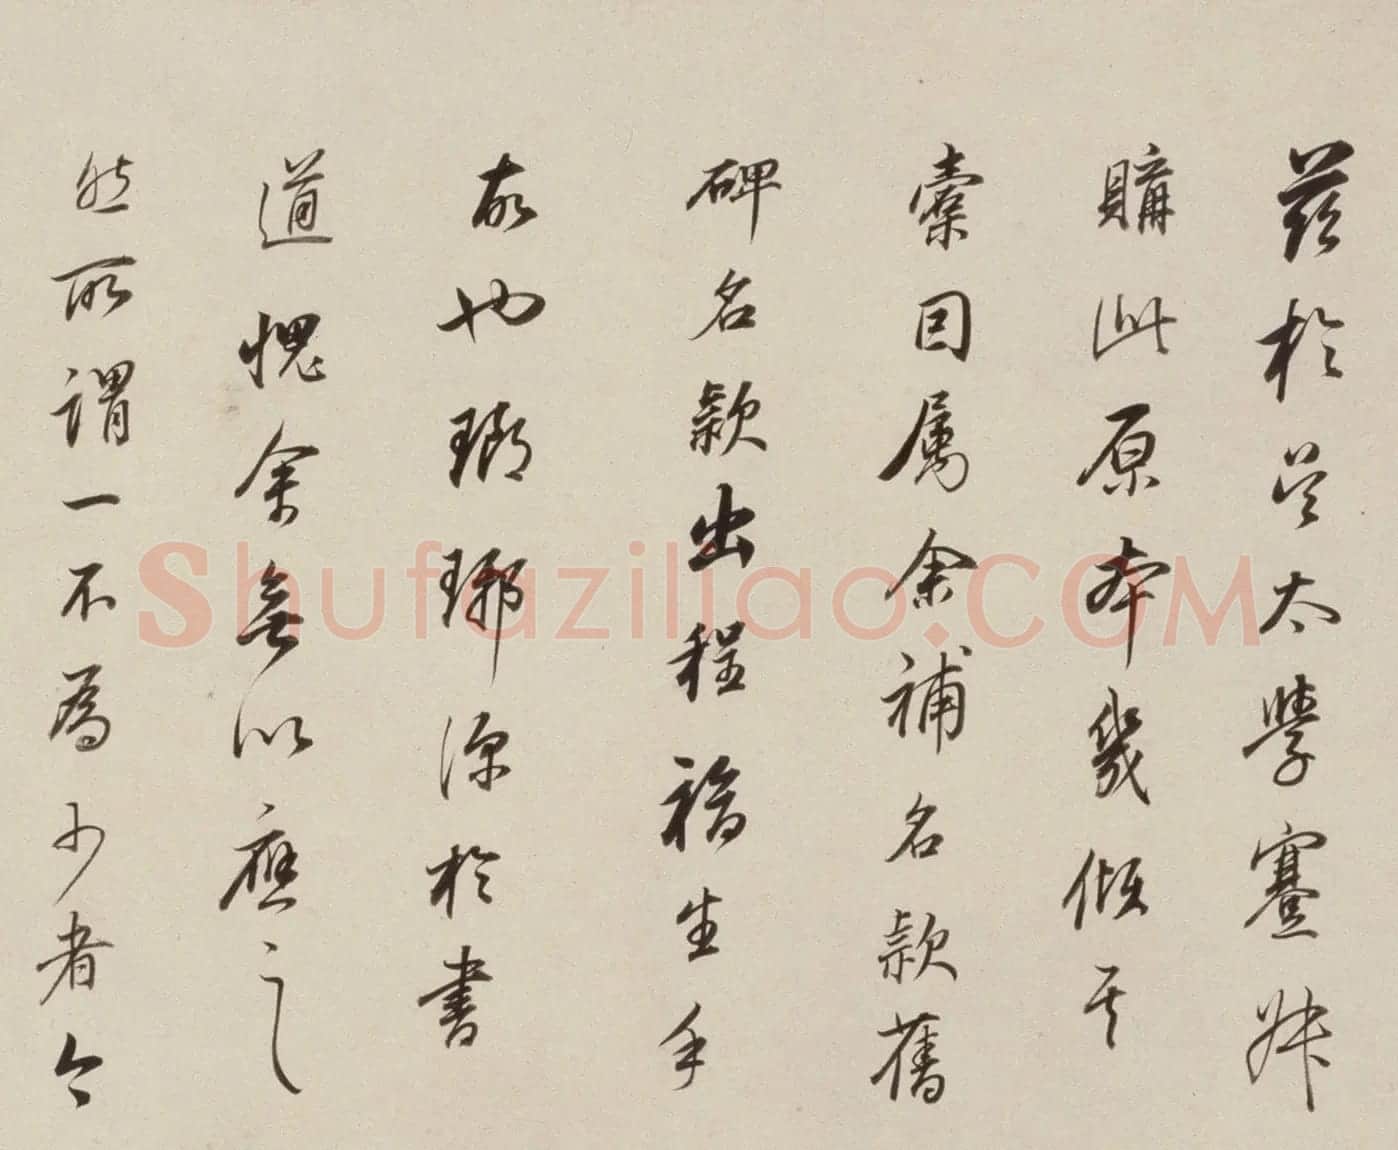 茲於吳太學蹇叔
購此原本幾傾其
橐因屬余補名款舊
碑名款出程福生手
故也瑯琊深於書
道愧余無以應之
然所謂一不為少者今
Shufaziliao.COM